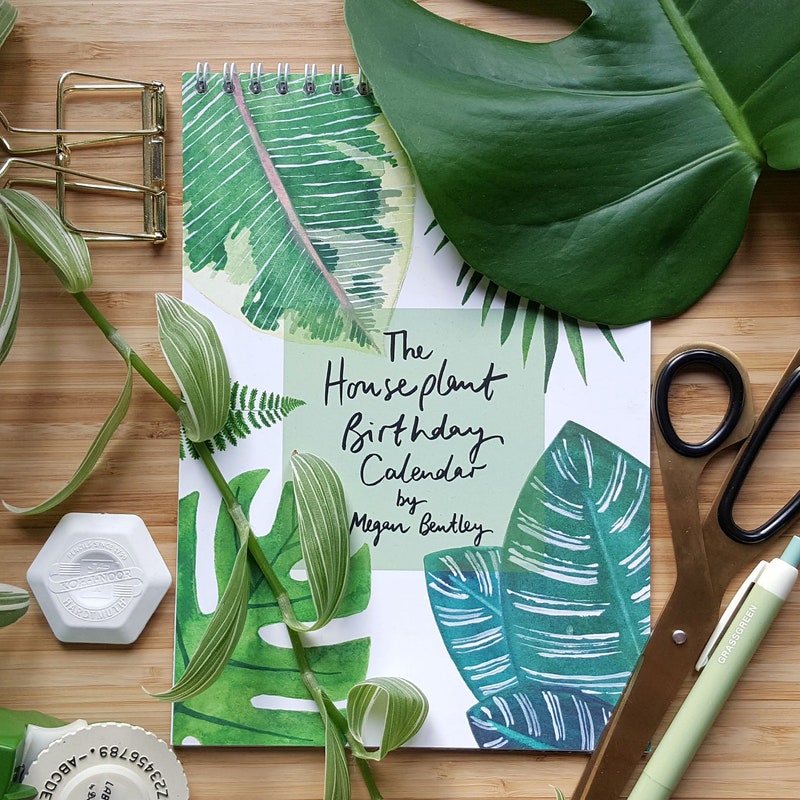 The
Houseplant
Birthday
Calendar
by
Megan Bentley
KOH-I-NOOR
HARDTMUTH
GRASSGREEN